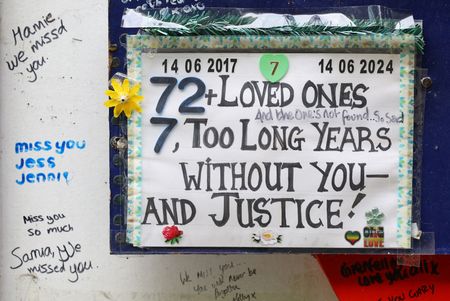 Hamie
we missd
you.
miss you
Jess
Jennie
Miss you
so much
we
missed you.
14 06 2017
7
14 06 2024
72+ LOVED ONES
And the one's not found.. So Sad
7, TOO LONG YEARS
WITHOUT YOU—
AND JUSTICE!
LOVE
We miss you...
you will never be
Grenfell
YOU GARY